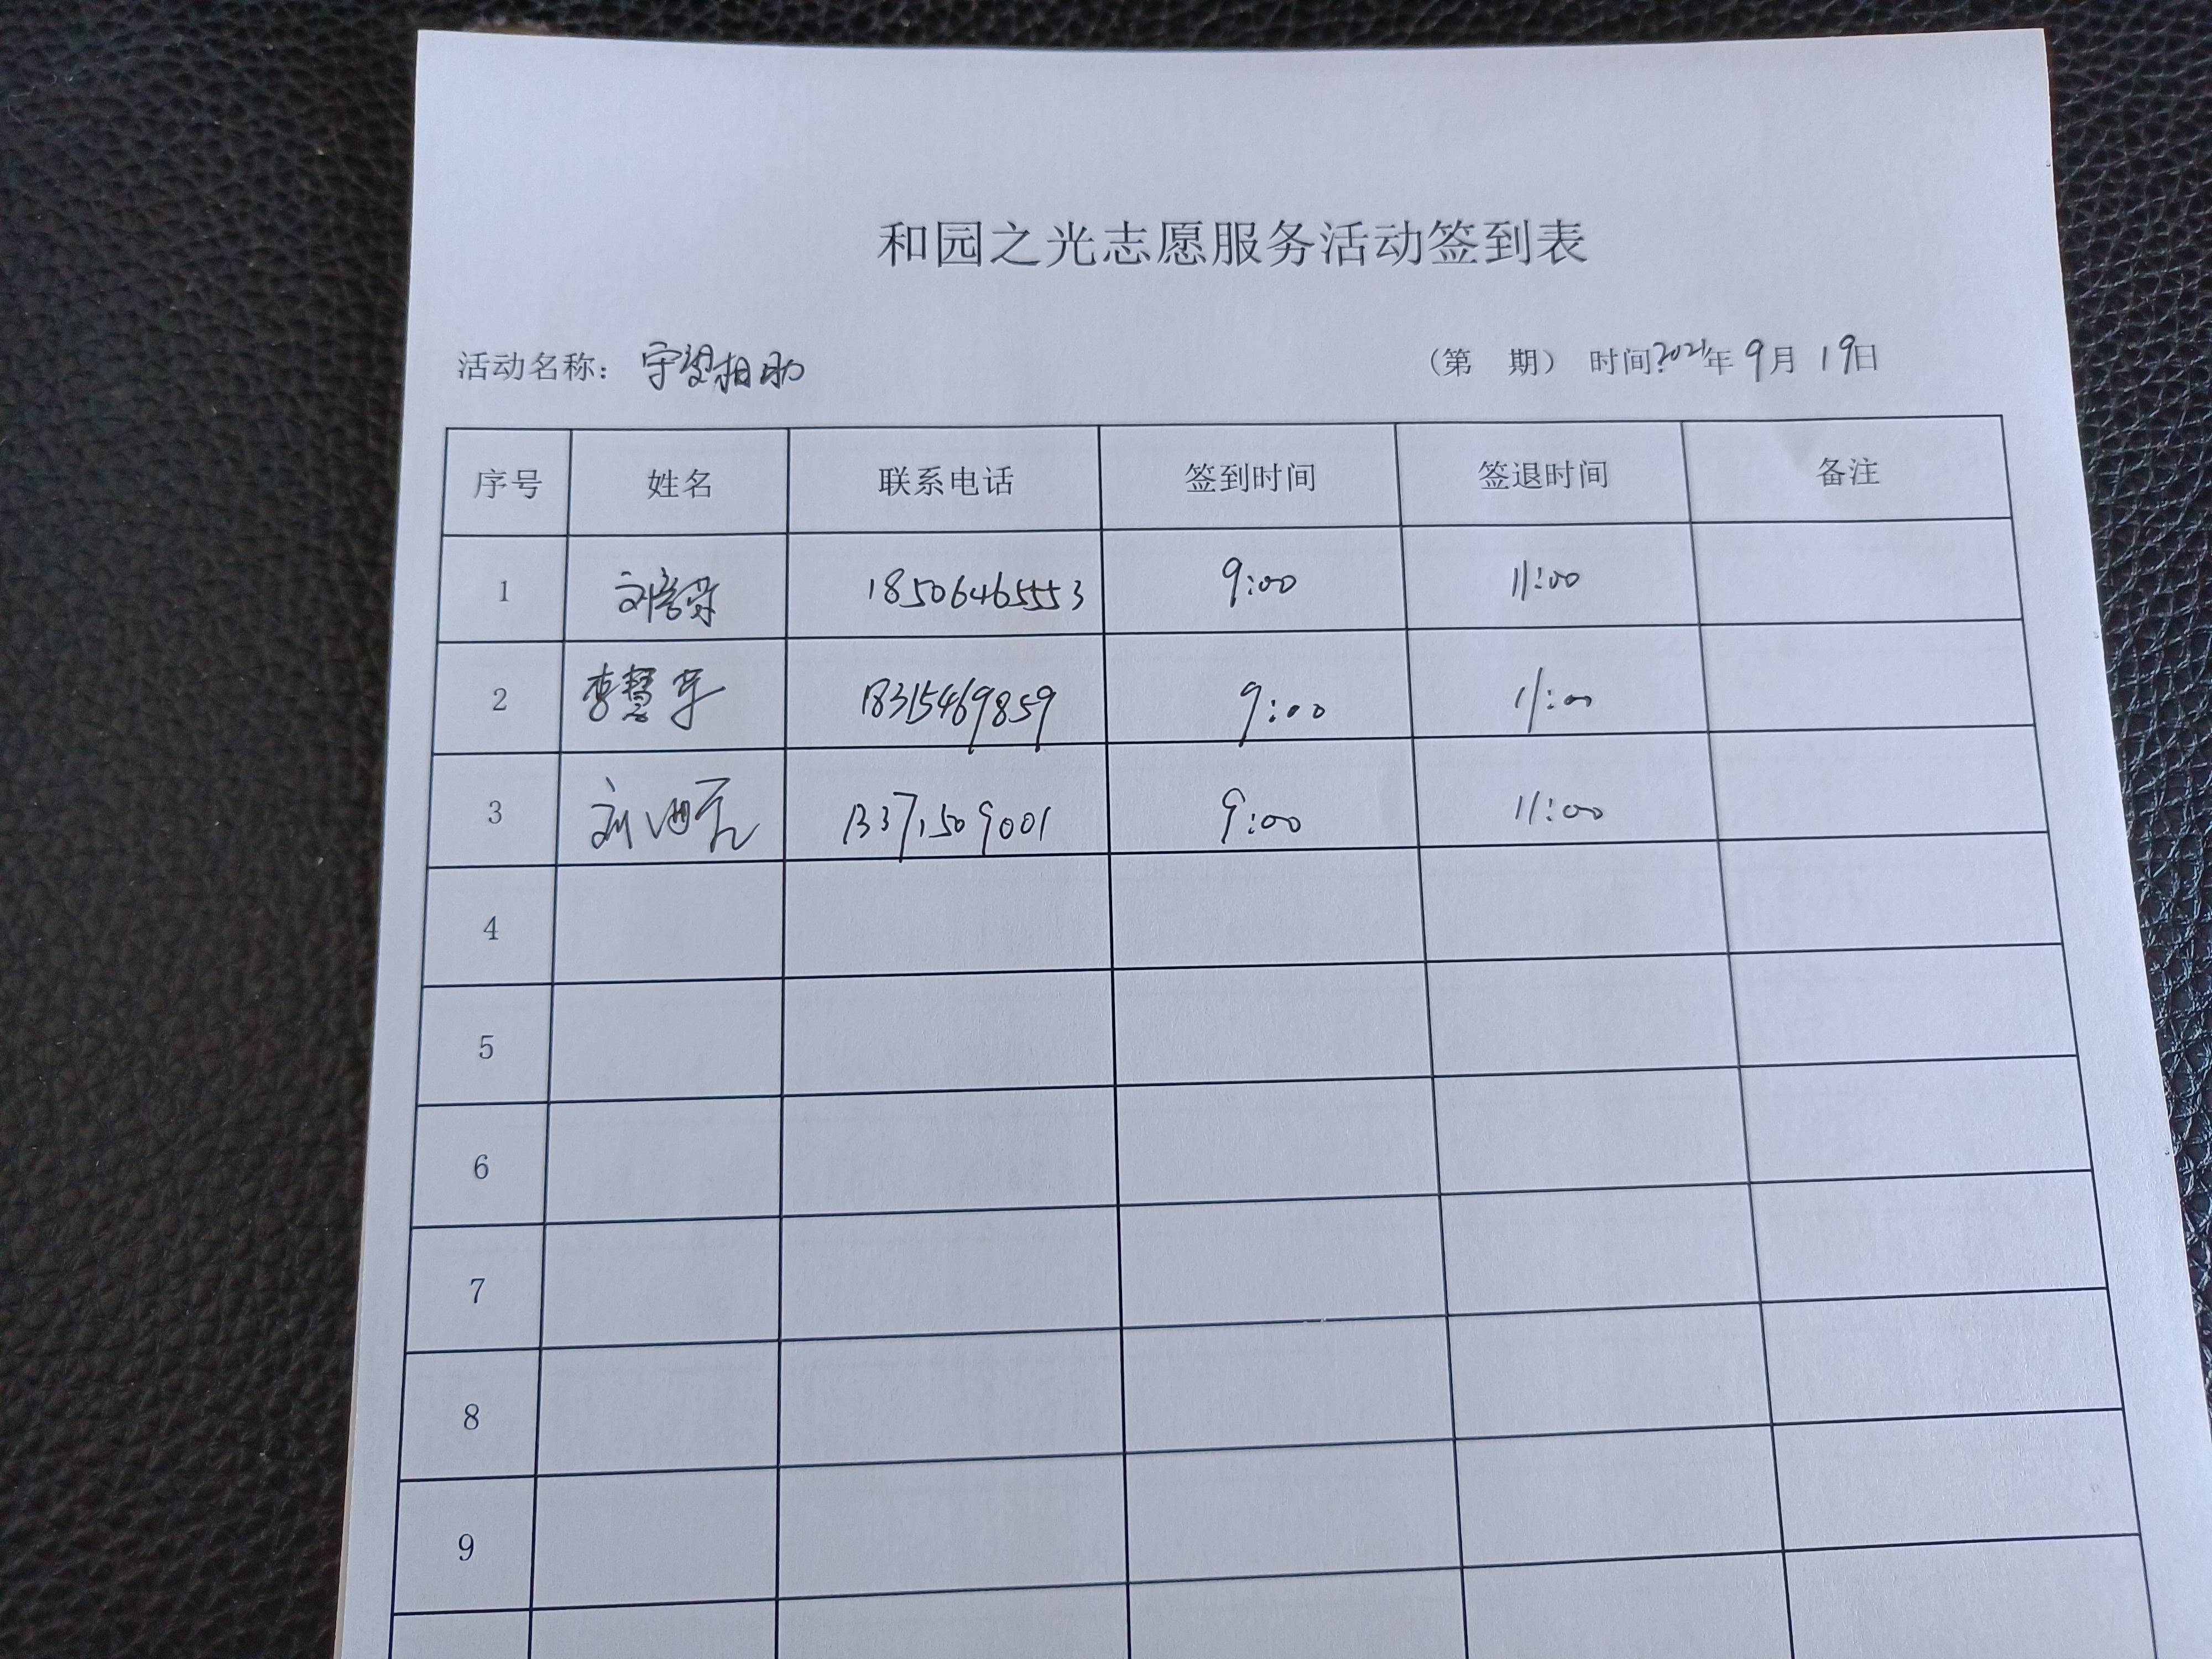 和园之光志愿服务活动签到表
活动名称：守望相助 （第 期） 时间：2021年9月19日
序号 姓名 联系电话 签到时间 签退时间 备注
1 刘 18506465553 9:00 11:00
2 李慧 18315469859 9:00 11:00
3 刘 13371509001 9:00 11:00
4
5
6
7
8
9